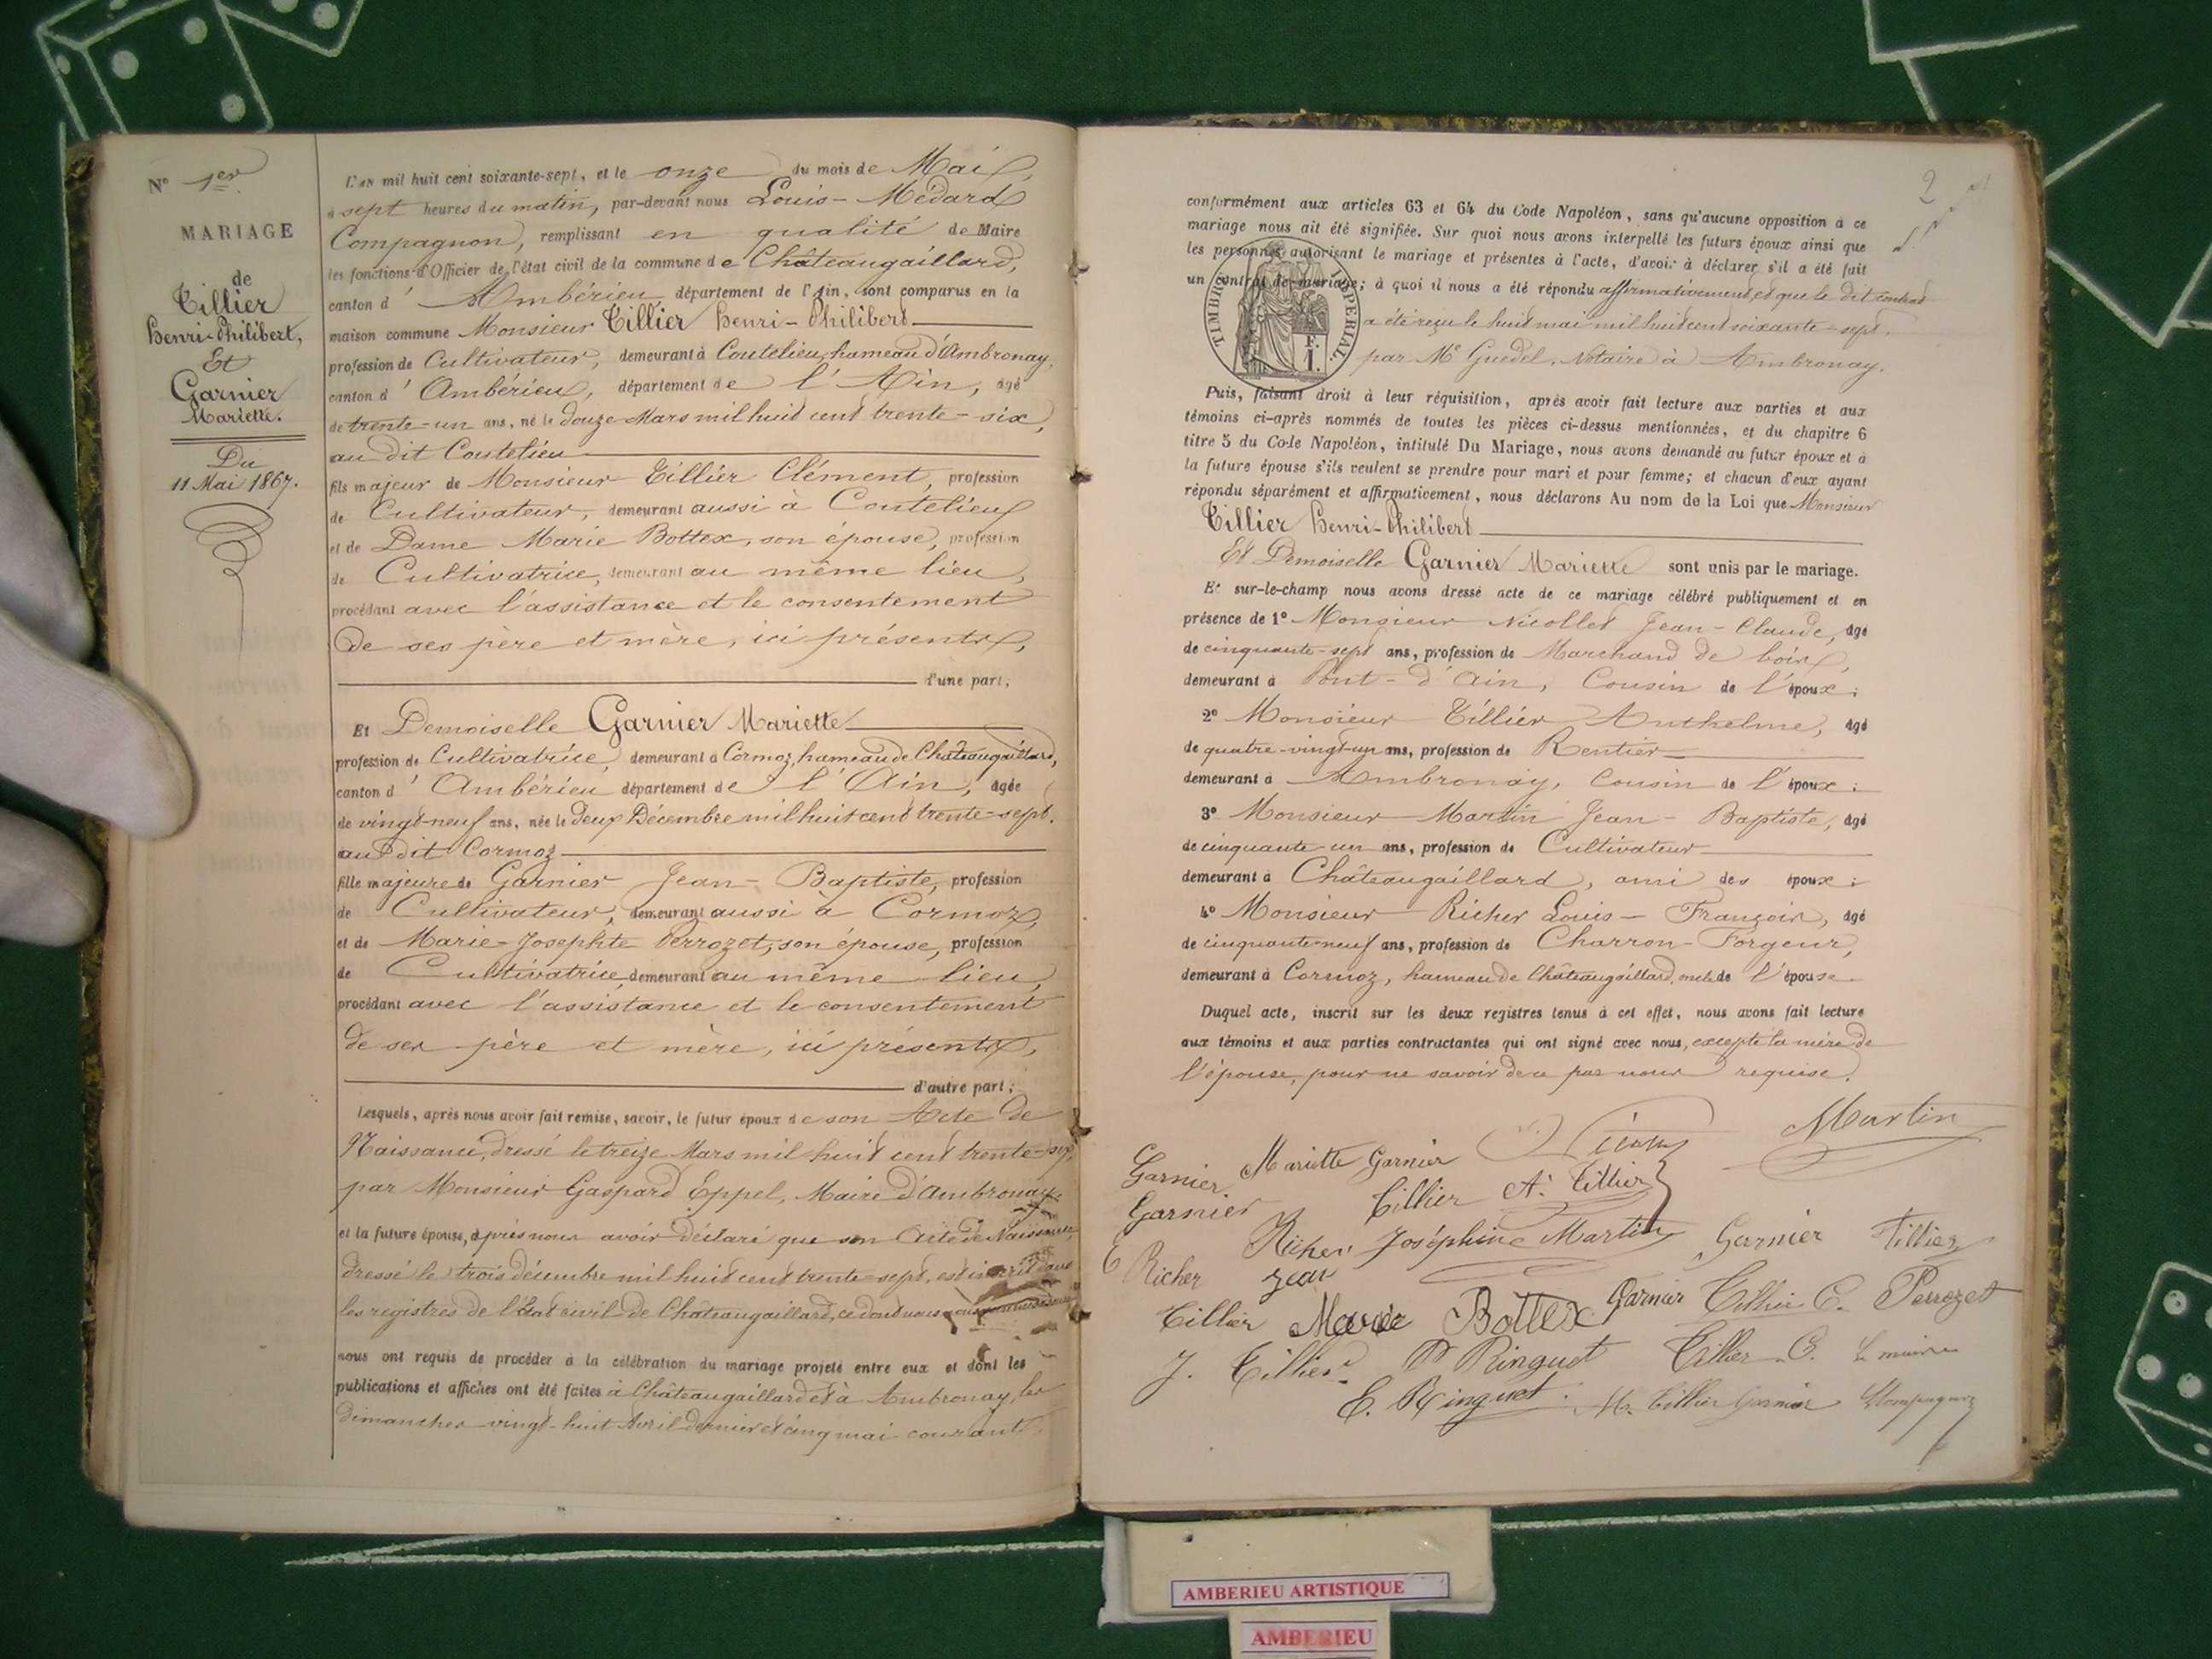 N° 1er
MARIAGE
de
Tillier
Henri-Philibert,
Et
Garnier
Mariette.
Du
11 Mai 1867.
L'AN mil huit cent soixante-sept, et le onze du mois de Mai,
à sept heures du matin, par-devant nous Louis-Médard
Compagnon, remplissant en qualité de Maire
les fonctions d'Officier de l'état civil de la commune de Châteaugaillard,
canton d'Ambérieu département de l'Ain, sont comparus en la
maison commune Monsieur Tillier Henri-Philibert
profession de Cultivateur, demeurant à Coutelieu, hameau d'Ambronay,
canton d'Ambérieu, département de l'Ain, âgé
de trente-un ans, né le douze Mars mil huit cent trente-six,
au dit Coutelieu
fils majeur de Monsieur Tillier Clément, profession
de Cultivateur, demeurant aussi à Coutelieu
et de Dame Marie Bottex, son épouse, profession
de Cultivatrice, demeurant au même lieu,
procédant avec l'assistance et le consentement
de ses père et mère, ici présents,
d'une part;
Et Demoiselle Garnier Mariette
profession de Cultivatrice, demeurant à Cormoz, hameau de Châteaugaillard,
canton d'Ambérieu département de l'Ain, âgée
de vingt-neuf ans, née le deux Décembre mil huit cent trente-sept,
au dit Cormoz
fille majeure de Garnier Jean-Baptiste, profession
de Cultivateur, demeurant aussi à Cormoz,
et de Marie-Josephte Perrozet, son épouse, profession
de Cultivatrice, demeurant au même lieu,
procédant avec l'assistance et le consentement
de ses père et mère, ici présents,
d'autre part;
Lesquels, après nous avoir fait remise, savoir, le futur époux de son Acte de
Naissance, dressé le treize Mars mil huit cent trente-six,
par Monsieur Gaspard Eppel, Maire d'Ambronay,
et la future épouse, après nous avoir déclaré que son Acte de Naissance,
dressé le trois décembre mil huit cent trente-sept, est inscrit dans
les registres de l'Etat civil de Châteaugaillard, ce dont nous
nous ont requis de procéder à la célébration du mariage projeté entre eux et dont les
publications et affiches ont été faites à Châteaugaillard et à Ambronay, les
dimanches vingt-huit Avril dernier et cinq mai courant,
2
conformément aux articles 63 et 64 du Code Napoléon, sans qu'aucune opposition à ce
mariage nous ait été signifiée. Sur quoi nous avons interpellé les futurs époux ainsi que
les personnes autorisant le mariage et présentes à l'acte, d'avoir à déclarer s'il a été fait
un contrat de mariage; à quoi il nous a été répondu affirmativement et que le dit contrat
a été reçu le huit mai mil huit cent soixante-sept,
par Me Guedel, Notaire à Ambronay.
TIMBRE IMPERIAL
Puis, faisant droit à leur réquisition, après avoir fait lecture aux parties et aux
témoins ci-après nommés de toutes les pièces ci-dessus mentionnées, et du chapitre 6
titre 5 du Code Napoléon, intitulé Du Mariage, nous avons demandé au futur époux et à
la future épouse s'ils veulent se prendre pour mari et pour femme; et chacun d'eux ayant
répondu séparément et affirmativement, nous déclarons Au nom de la Loi que Monsieur
Tillier Henri-Philibert
Et Demoiselle Garnier Mariette sont unis par le mariage.
Et sur-le-champ nous avons dressé acte de ce mariage célébré publiquement et en
présence de 1° Monsieur Nicollet Jean-Claude, âgé
de cinquante-sept ans, profession de Marchand de bois,
demeurant à Pont-d'Ain, Cousin de l'époux;
2° Monsieur Tillier Anthelme, âgé
de quatre-vingt-un ans, profession de Rentier
demeurant à Ambronay, Cousin de l'époux;
3° Monsieur Martin Jean-Baptiste, âgé
de cinquante un ans, profession de Cultivateur
demeurant à Châteaugaillard, ami des époux;
4° Monsieur Richer Louis-François, âgé
de cinquante-neuf ans, profession de Charron-Forgeur,
demeurant à Cormoz, hameau de Châteaugaillard, oncle de l'épouse.
Duquel acte, inscrit sur les deux registres tenus à cet effet, nous avons fait lecture
aux témoins et aux parties contractantes qui ont signé avec nous, excepté la mère de
l'épouse, pour ne savoir de ce par nous requise.
Garnier Mariette Garnier Martin
Garnier Tillier A. Tillier
Richer Joséphine Martin Garnier Tillier
Richer Jean
Tillier Marie Bottex Garnier Tillier C. Perrozet
J. Tillier P Ringuet Tillier C. Le maire
E. Ringuet M. Tillier Garnier Compagnon
AMBERIEU ARTISTIQUE
AMBERIEU